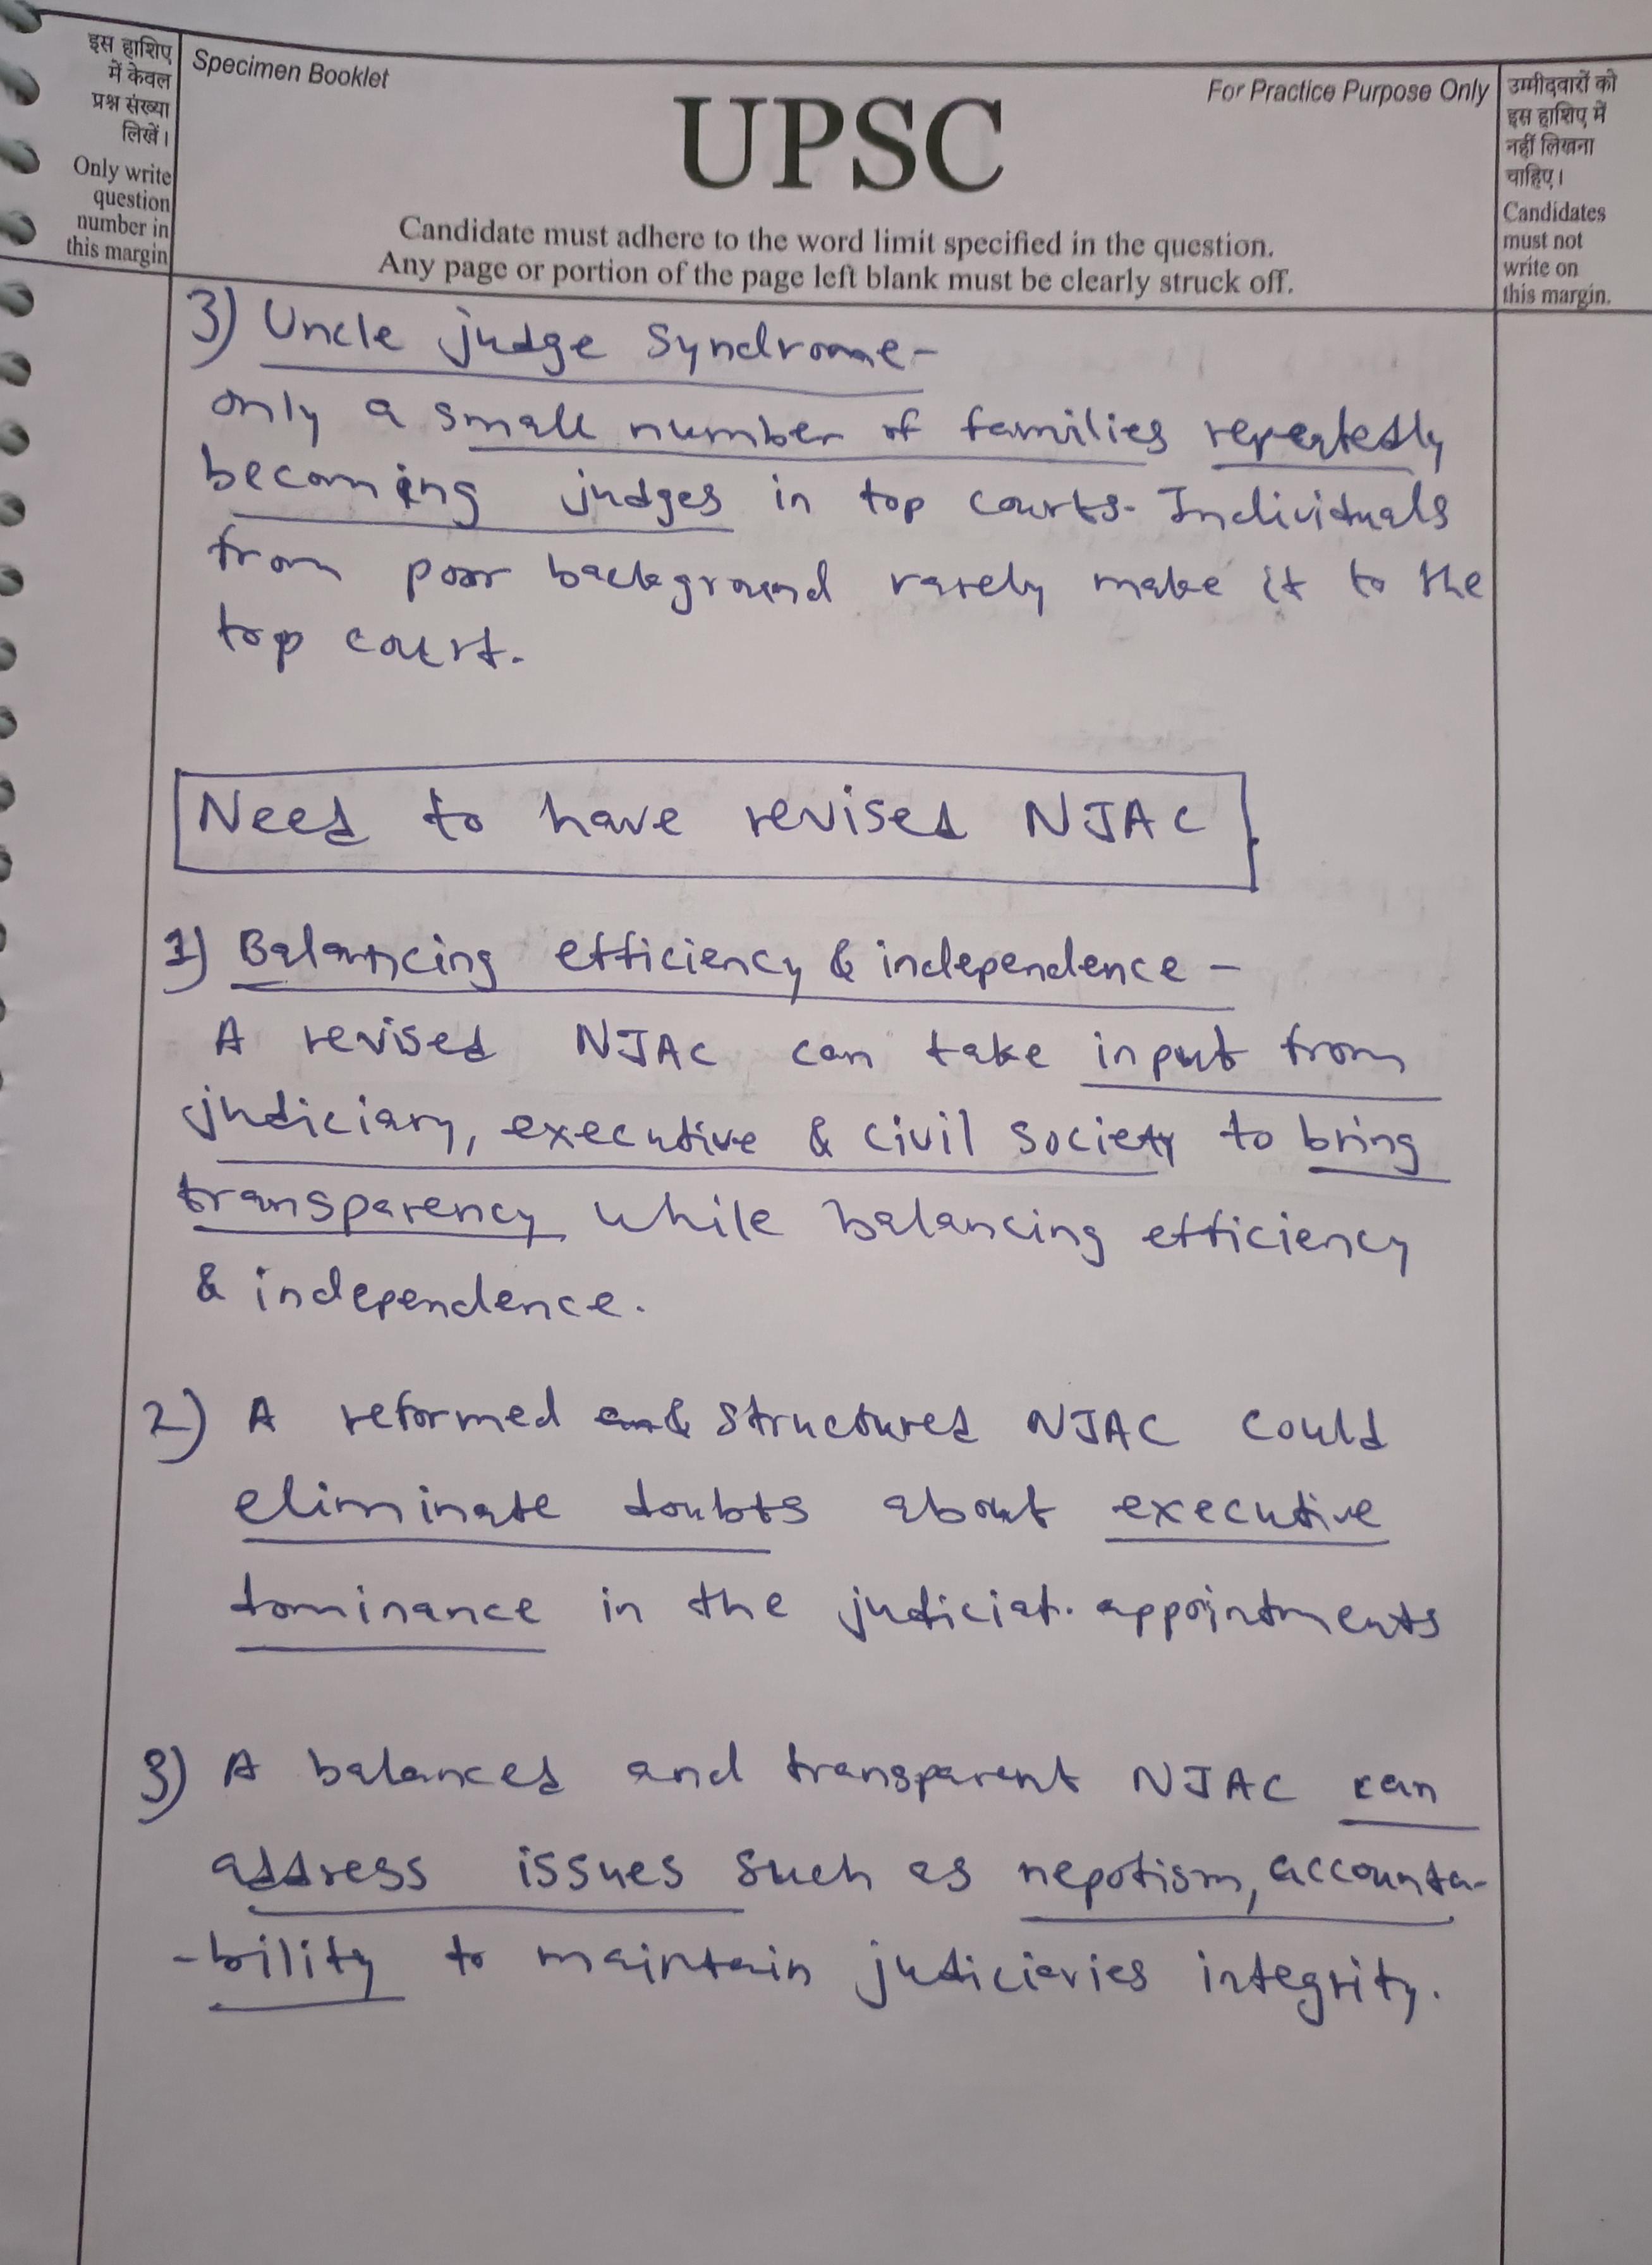 इस हाशिए
में केवल
प्रश्न संख्या
लिखें।
Only write
question
number in
this margin
Specimen Booklet
For Practice Purpose Only
UPSC
Candidate must adhere to the word limit specified in the question.
Any page or portion of the page left blank must be clearly struck off.
उम्मीदवारों को
इस हाशिए में
नहीं लिखना
चाहिए।
Candidates
must not
write on
this margin.
3) Uncle judge Syndrome-
only a small number of families repeatedly
becoming judges in top courts. Individuals
from poor background rarely make it to the
top court.
Need to have revised NJAC
1) Balancing efficiency & independence -
A revised NJAC can take input from
judiciary, executive & civil society to bring
transparency while balancing efficiency
& independence.
2) A reformed & structured NJAC could
eliminate doubts about executive
dominance in the judicial appointments
3) A balanced and transparent NJAC can
address issues such as nepotism, accounta-
-bility to maintain judiciaries integrity.